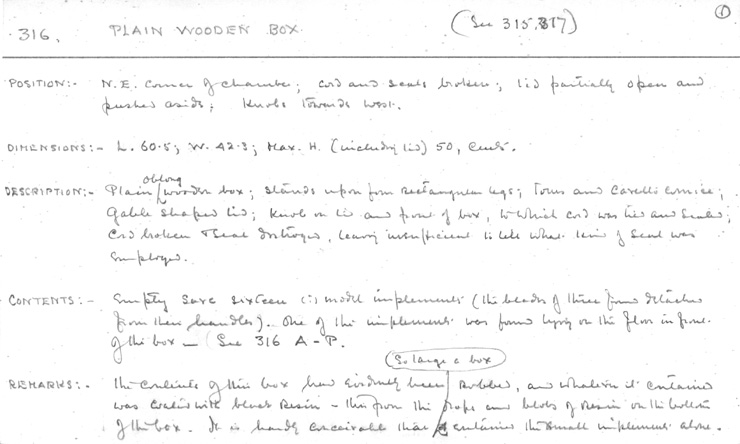 ①
316. PLAIN WOODEN BOX. (See 315, 317)
POSITION:- N.E. corner of chamber; cord and seals broken; lid partially open and
pushed aside; Knobs towards West.
DIMENSIONS:- L. 60.5; W. 42.3; Max. H. (including lid) 50, Cents.
DESCRIPTION:- Plain oblong wooden box; stands upon four rectangular legs; Torus and Cavetto cornice;
Gable shaped lid; Knob on lid and front of box, to which cord was tied and sealed;
Cord broken & seal destroyed, leaving insufficient to tell what kind of seal was
employed.
CONTENTS:- Empty save sixteen model implements (the blades of three found detached
from their handles). One of the implements was found lying on the floor in front
of the box — See 316 A-P.
REMARKS:- The contents of this box had evidently been robbed, and whatever it contained
was coated with black resin - this from the drops and blobs of resin on the bottom
of the box. It is hardly conceivable that so large a box contained the small implements alone.